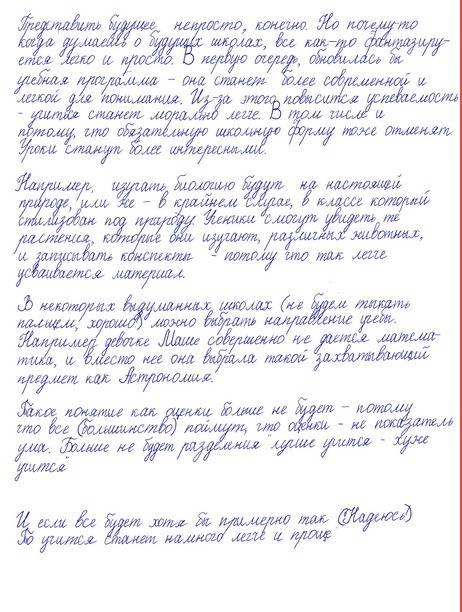 Представить будущее непросто, конечно. Но почему-то
когда думаешь о будущих школах, все как-то фантазиру-
ется легко и просто. В первую очередь, обновилась бы
учебная программа - она станет более современной и
легкой для понимания. Из-за этого повысится успеваемость
- учится станет морально легче. В том числе и
потому, что обязательную школьную форму тоже отменят.
Уроки станут более интересными.
Например, изучать биологию будут на настоящей
природе, или же - в крайнем случае, в классе который
стилизован под природу. Ученики смогут увидеть те
растения, которые они изучают, различных животных,
и записывать конспекты - потому что так легче
усваивается материал.
В некоторых выдуманных школах (не будем тыкать
пальцем, хорошо?) можно выбрать направление учебы.
Например девочке Маше совершенно не дается матема-
тика, и вместо нее она выбрала такой захватывающий
предмет как Астрономия.
Такое понятие как оценки больше не будет - потому
что все (большинство) поймут, что оценки - не показатель
ума. Больше не будет разделения "лучше учится - хуже
учится"
И если все будет хотя бы примерно так (Надеюсь)
То учится станет намного легче и проще.